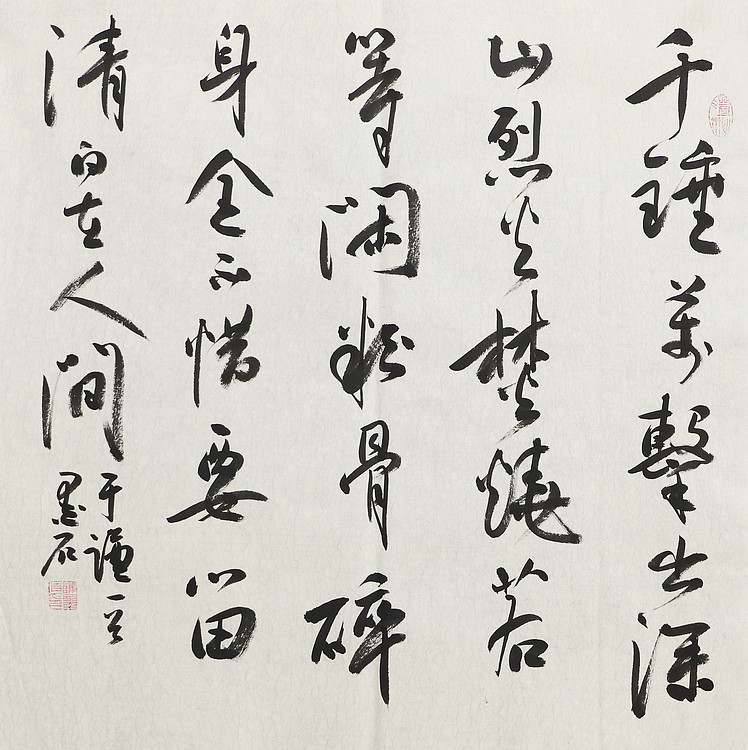 千錘萬擊出深
山烈火焚燒若
等閑粉骨碎
身全不惜要留
清白在人間
于謙一首
墨石